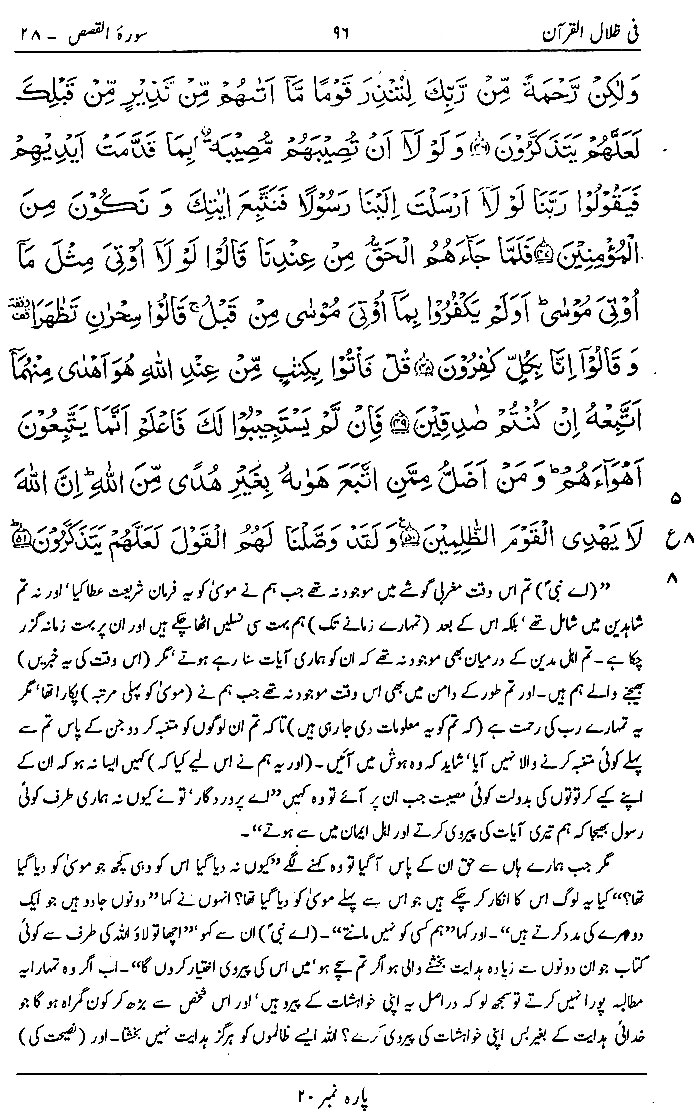 فی ظلال القرآن ۹۶ سورۃ القصص - ۲۸
وَلٰكِنْ رَّحْمَةً مِّنْ رَّبِّكَ لِتُنْذِرَ قَوْمًا مَّاۤ اَتٰىهُمْ مِّنْ نَّذِيْرٍ مِّنْ قَبْلِكَ
لَعَلَّهُمْ يَتَذَكَّرُوْنَ ﴿۴۶﴾ وَلَوْ لَاۤ اَنْ تُصِيْبَهُمْ مُّصِيْبَةٌۢ بِمَا قَدَّمَتْ اَيْدِيْهِمْ
فَيَقُوْلُوْا رَبَّنَا لَوْ لَاۤ اَرْسَلْتَ اِلَيْنَا رَسُوْلًا فَنَتَّبِعَ اٰيٰتِكَ وَ نَكُوْنَ مِنَ
الْمُؤْمِنِيْنَ ﴿۴۷﴾ فَلَمَّا جَآءَهُمُ الْحَقُّ مِنْ عِنْدِنَا قَالُوْا لَوْ لَاۤ اُوْتِيَ مِثْلَ مَاۤ
اُوْتِيَ مُوْسٰى ؕ اَوَلَمْ يَكْفُرُوْا بِمَاۤ اُوْتِيَ مُوْسٰى مِنْ قَبْلُ ۚ قَالُوْا سِحْرٰنِ تَظٰهَرَا
وَ قَالُوْۤا اِنَّا بِكُلٍّ كٰفِرُوْنَ ﴿۴۸﴾ قُلْ فَاْتُوْا بِكِتٰبٍ مِّنْ عِنْدِ اللّٰهِ هُوَ اَهْدٰى مِنْهُمَاۤ
اَتَّبِعْهُ اِنْ كُنْتُمْ صٰدِقِيْنَ ﴿۴۹﴾ فَاِنْ لَّمْ يَسْتَجِيْبُوْا لَكَ فَاعْلَمْ اَنَّمَا يَتَّبِعُوْنَ
اَهْوَآءَهُمْ ؕ وَ مَنْ اَضَلُّ مِمَّنِ اتَّبَعَ هَوٰىهُ بِغَيْرِ هُدًى مِّنَ اللّٰهِ ؕ اِنَّ اللّٰهَ
لَا يَهْدِى الْقَوْمَ الظّٰلِمِيْنَ ﴿۵۰﴾ وَ لَقَدْ وَصَّلْنَا لَهُمُ الْقَوْلَ لَعَلَّهُمْ يَتَذَكَّرُوْنَ ﴿۵۱﴾
۵
ع ۸
۸
”(اے نبیؐ) تم اس وقت مغربی گوشے میں موجود نہ تھے جب ہم نے موسیٰ کو یہ فرمان شریعت عطا کیا‘ اور نہ تم
شاہدین میں شامل تھے‘ بلکہ اس کے بعد (تمہارے زمانے تک) ہم بہت سی نسلیں اٹھا چکے ہیں اور ان پر بہت زمانہ گزر
چکا ہے۔ تم اہل مدین کے درمیان بھی موجود نہ تھے کہ ان کو ہماری آیات سنا رہے ہوتے‘ مگر (اس وقت کی یہ خبریں)
بھیجنے والے ہم ہیں۔ اور تم طور کے دامن میں بھی اس وقت موجود نہ تھے جب ہم نے (موسیٰ کو پہلی مرتبہ) پکارا تھا‘ مگر
یہ تمہارے رب کی رحمت ہے (کہ تم کو یہ معلومات دی جا رہی ہیں) تاکہ تم ان لوگوں کو متنبہ کر دو جن کے پاس تم سے
پہلے کوئی متنبہ کرنے والا نہیں آیا‘ شاید کہ وہ ہوش میں آئیں۔ (اور یہ ہم نے اس لیے کیا کہ) کہیں ایسا نہ ہو کہ ان کے
اپنے کیے کرتوتوں کی بدولت کوئی مصیبت جب ان پر آئے تو وہ کہیں ”اے پروردگار‘ تو نے کیوں نہ ہماری طرف کوئی
رسول بھیجا کہ ہم تیری آیات کی پیروی کرتے اور اہل ایمان میں سے ہوتے“۔
مگر جب ہمارے ہاں سے حق ان کے پاس آ گیا تو وہ کہنے لگے ”کیوں نہ دیا گیا اس کو وہی کچھ جو موسیٰ کو دیا گیا
تھا؟“ کیا یہ لوگ اس کا انکار کر چکے ہیں جو اس سے پہلے موسیٰ کو دیا گیا تھا؟ انہوں نے کہا ”دونوں جادو ہیں جو ایک
دوسرے کی مدد کرتے ہیں“۔ اور کہا ”ہم کسی کو نہیں مانتے“۔ (اے نبیؐ) ان سے کہو‘ ”اچھا تو لاؤ اللہ کی طرف سے کوئی
کتاب جو ان دونوں سے زیادہ ہدایت بخشنے والی ہو اگر تم سچے ہو‘ میں اس کی پیروی اختیار کروں گا“۔ اب اگر وہ تمہارا یہ
مطالبہ پورا نہیں کرتے تو سمجھ لو کہ دراصل یہ اپنی خواہشات کے پیرو ہیں‘ اور اس شخص سے بڑھ کر کون گمراہ ہو گا جو
خدائی ہدایت کے بغیر بس اپنی خواہشات کی پیروی کرے؟ اللہ ایسے ظالموں کو ہرگز ہدایت نہیں بخشتا۔ اور (نصیحت کی)
پارہ نمبر ۲۰